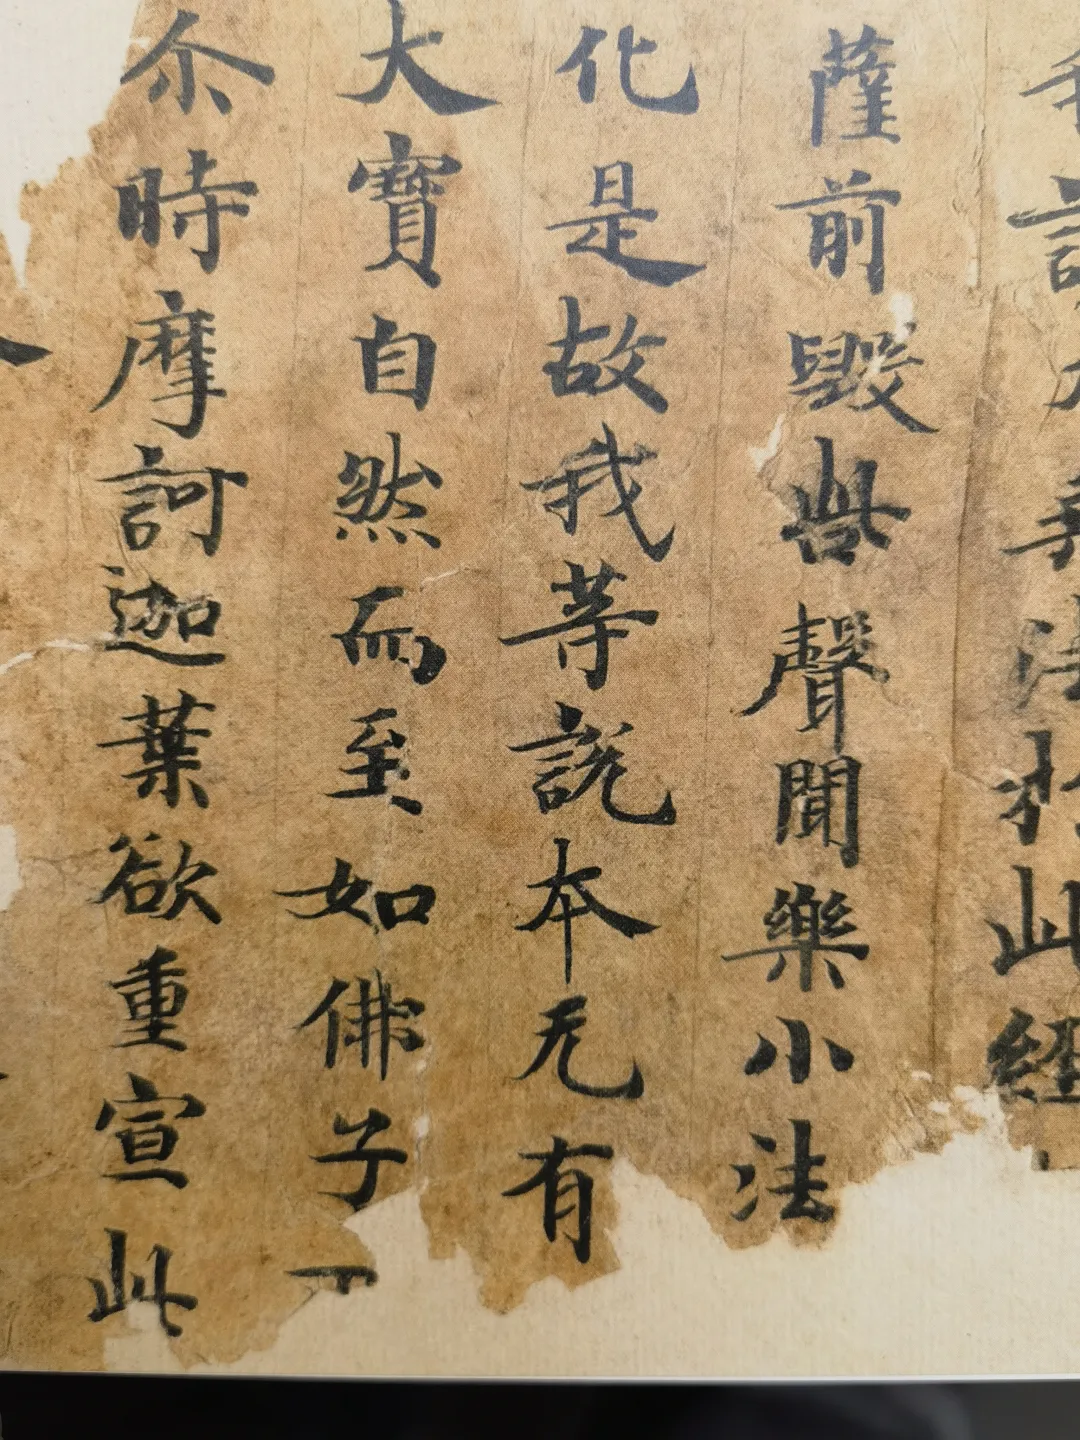 我說大乘法於此經
薩前毀呰聲聞樂小法
化是故我等說本无有
大寶自然而至如佛子
尒時摩訶迦葉欲重宣此